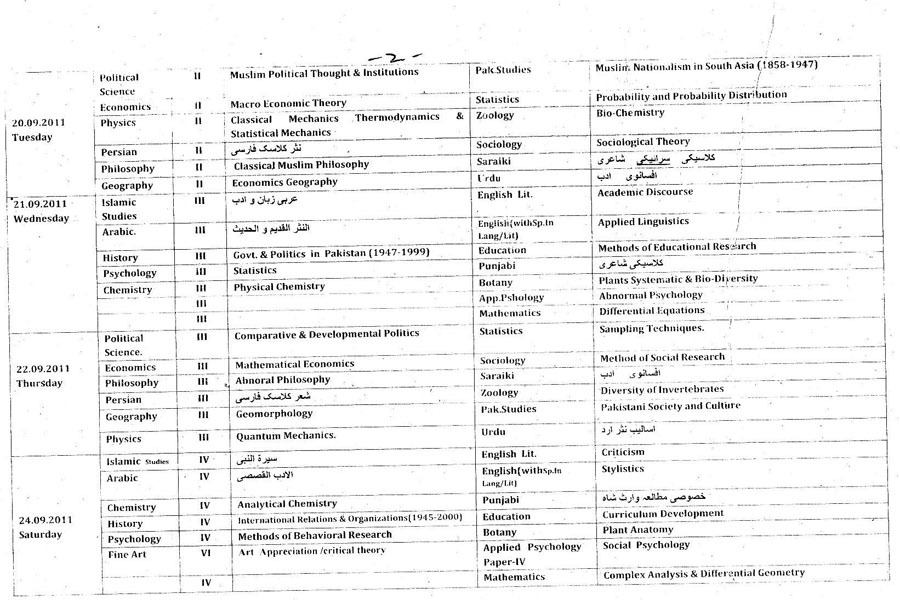 -2-
20.09.2011 Tuesday
Political Science II Muslim Political Thought & Institutions Pak.Studies Muslim Nationalism in South Asia (1858-1947)
Economics II Macro Economic Theory Statistics Probability and Probability Distribution
Physics II Classical Mechanics Thermodynamics & Statistical Mechanics Zoology Bio-Chemistry
Persian II نثر کلاسک فارسی Sociology Sociological Theory
Philosophy II Classical Muslim Philosophy Saraiki کلاسیکی سرائیکی شاعری
Geography II Economics Geography Urdu افسانوی ادب
21.09.2011 Wednesday
Islamic Studies III عربی زبان و ادب English Lit. Academic Discourse
Arabic. III النثر القديم و الحديث English(withSp.In Lang/Lit) Applied Linguistics
History III Govt. & Politics in Pakistan (1947-1999) Education Methods of Educational Research
Psychology III Statistics Punjabi کلاسیکی شاعری
Chemistry III Physical Chemistry Botany Plants Systematic & Bio-Diversity
III App.Pshology Abnormal Psychology
III Mathematics Differential Equations
22.09.2011 Thursday
Political Science. III Comparative & Developmental Politics Statistics Sampling Techniques.
Economics III Mathematical Economics Sociology Method of Social Research
Philosophy III Abnoral Philosophy Saraiki افسانوی ادب
Persian III شعر کلاسک فارسی Zoology Diversity of Invertebrates
Geography III Geomorphology Pak.Studies Pakistani Society and Culture
Physics III Quantum Mechanics. Urdu اسالیب نثر ارد
24.09.2011 Saturday
Islamic Studies IV سيرة النبى English Lit. Criticism
Arabic IV الادب القصصى English(withSp.In Lang/Lit) Stylistics
Chemistry IV Analytical Chemistry Punjabi خصوصی مطالعہ وارث شاہ
History IV International Relations & Organizations(1945-2000) Education Curriculum Development
Psychology IV Methods of Behavioral Research Botany Plant Anatomy
Fine Art VI Art Appreciation /critical theory Applied Psychology Paper-IV Social Psychology
IV Mathematics Complex Analysis & Differential Geometry